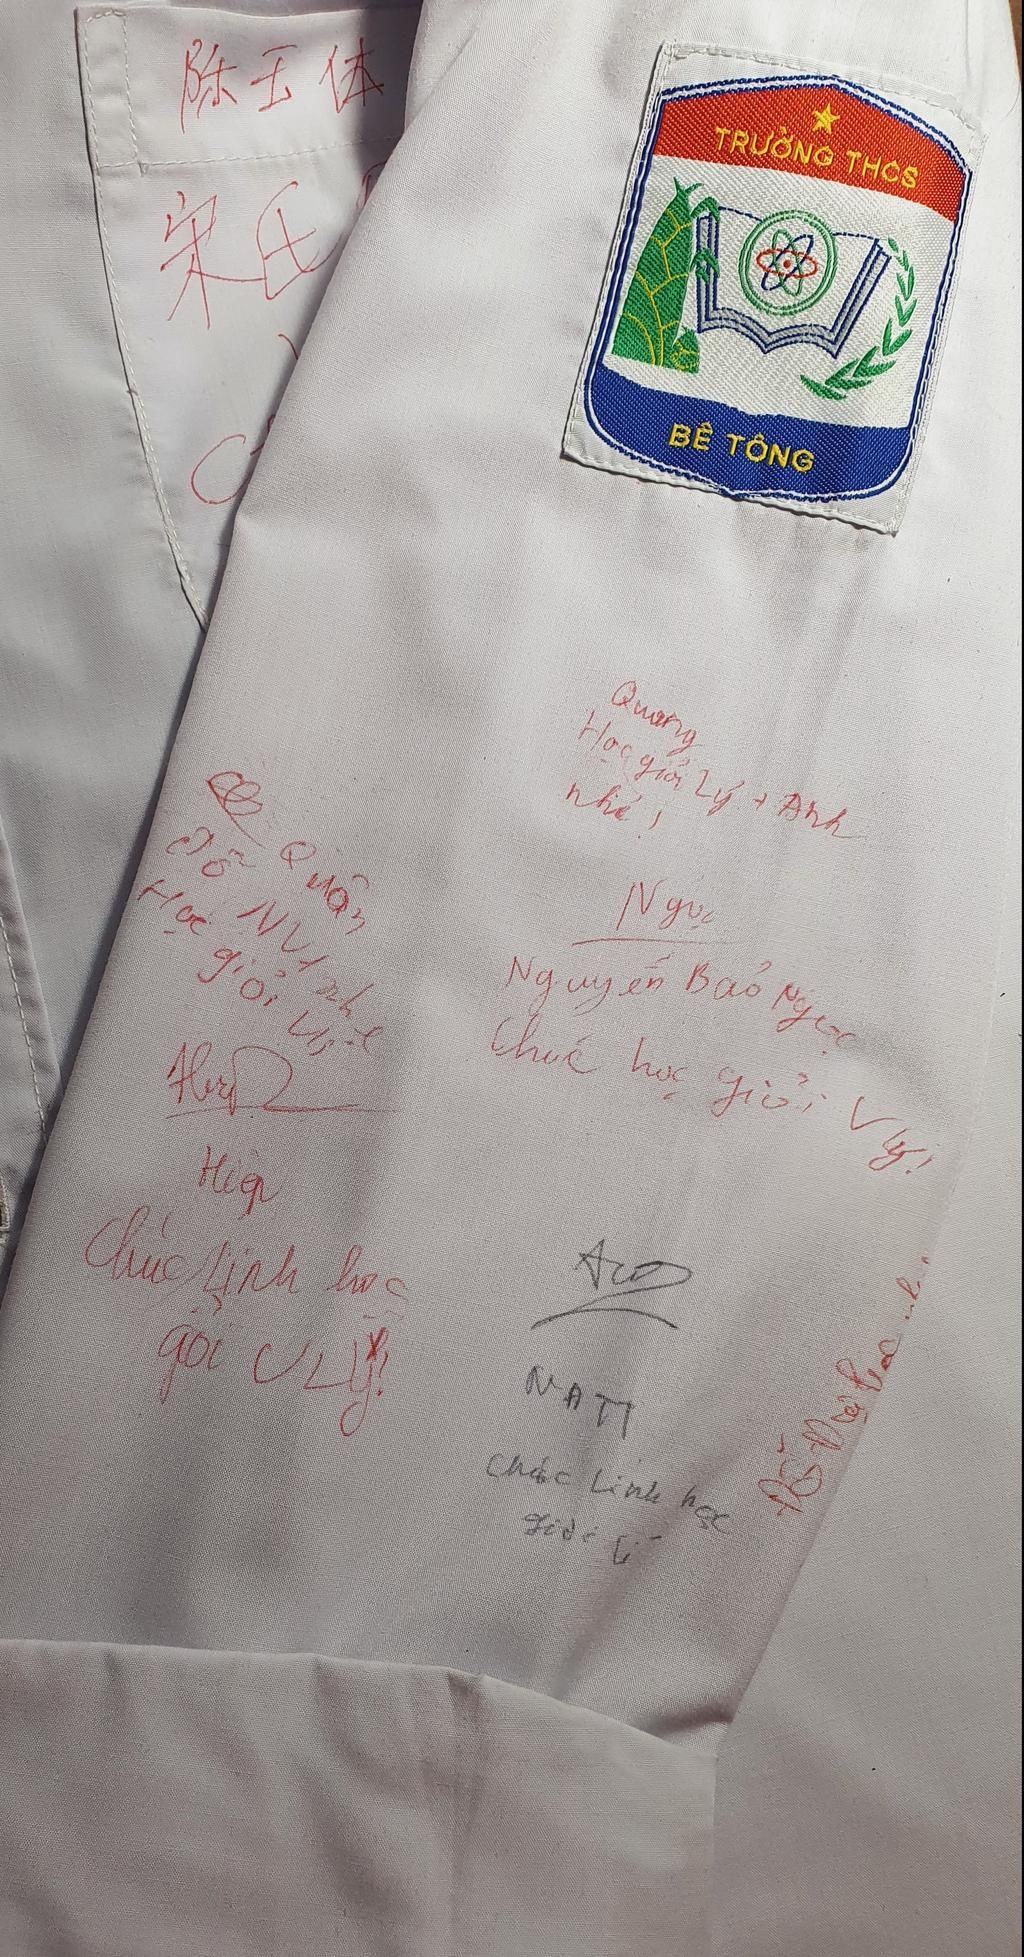 陈玉体
宋氏
TRƯỜNG THCS
BÊ TÔNG
Quang
Học giỏi Lý + Anh
nhé!
Quân
Đỗ NV1 nhé
Học giỏi
Ngọc
Nguyễn Bảo Ngọc
Chúc học giỏi VLý!
Hiệp
Chúc Linh học
giỏi VLý!
NATT
Chúc Linh học
giỏi lí
Đỗ Đại học